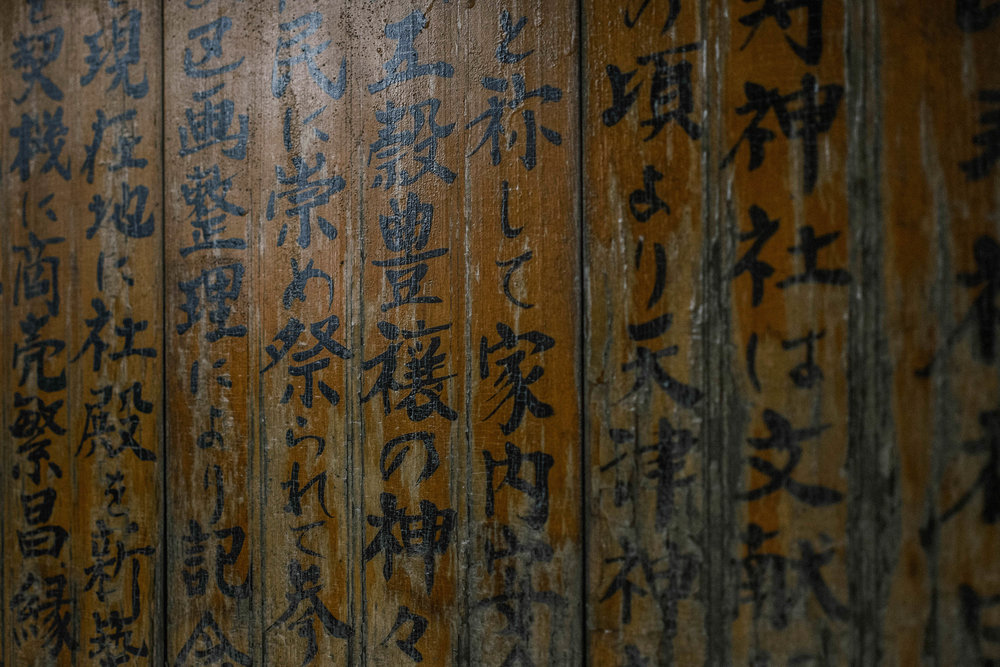 神社は文献
の頃より天津神
と称して家内安
五穀豊穣の神々
民に崇め祭られて参
区画整理により記
現在地に社殿を新築
契機に商売繁昌縁